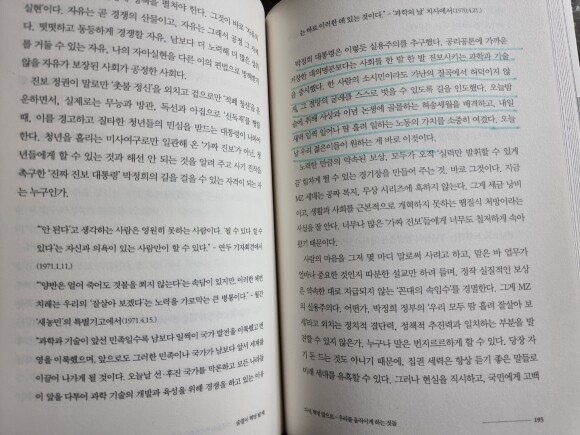 실현'이다. 자유는 곧 경쟁의 산물이고, 자유는 그래서 공정 그 자체
다. 떳떳하고 동등하게 경쟁할 자유, 남보다 더 노력해 더 많은 
를 거둘 수 있는 자유, 나의 자아실현을 다른 이의 편법으로 방해받
않을 자유가 보장된 사회가 공정한 사회다.
진보 정권이 말로만 '촛불 정신'을 외치고 겉으로만 '적폐 청산'을
운하면서, 실제로는 무능과 방관, 독선과 아집으로 '신독재'를 행할
때, 이를 경고하고 질타한 청년들의 민심을 받드는 대통령이 나와야
한다. 청년을 홀리는 미사여구로만 일관해 온 '가짜 진보' 아닌, 청
년들에게 할 수 있는 것과 해선 안 되는 것을 알려 주고 사기 진작을
촉구한 '진짜 진보 대통령' 박정희의 길을 걸을 수 있는 자격이 되는
는 누구인가.
"'안 된다'고 생각하는 사람은 영원히 못하는 사람이다. '될 수 있다 할 수
있다'는 자신과 의욕이 있는 사람만이 할 수 있다." - 연두 기자회견에서
(1971.1.11.)
"'양반은 얼어 죽어도 겻불을 쬐지 않는다'는 속담이 있지만, 이러한 체면
치레는 우리의 '잘살아 보겠다'는 노력을 가로막는 큰 병폐이다." - 월간
'새농민'의 특별기고에서(1971.4.15.)
"과학과 기술이 앞선 민족일수록 남보다 일찍이 국가 발전을 이룩했고 번
영을 이룩했으며, 앞으로도 그러한 민족이나 국가가 남보다 앞서 세계를
이끌어 나가게 될 것이다. 오늘날 선·후진 국가를 막론하고 모든 나라들
이 앞을 다투어 과학 기술의 개발과 육성을 위해 경쟁을 하고 있는 이유
는 바로 이러한 데 있는 것이다." - '과학의 날' 치사에서(1970.4.21.)
박정희 대통령은 이렇듯 실용주의를 추구했다. 공리공론에 가까운
거창한 대의명분보다는 사회를 한 발 한 발 진보시키는 과학과 기술
을 중시했다. 한 사람의 소시민이라도 가난의 질곡에서 허덕이지 않
고, 그 절망의 굴레를 스스로 벗을 수 있도록 길을 인도했다. 오늘밤
술에 취해 사상과 이념 논쟁에 골몰하는 허송세월을 배격하고, 내일
새벽 일찍 일어나 땀 흘려 일하는 노동의 가치를 소중히 여겼다. 오늘
날 우리 젊은이들이 원하는 게 바로 이것이다.
노력한 만큼의 약속된 보상, 모두가 오직 '실력'만 발휘할 수 있게
끔 힘차게 뛸 수 있는 경기장을 만들어 주는 것. 바로 그것이다. 지금
MZ 세대는 공짜 복지, 무상 시리즈에 혹하지 않는다. 그게 세금 낭비
이고, 생활과 사회를 근본적으로 개혁하지 못하는 땜질식 처방이라는
사실을 잘 안다. 너무나 많은 '가짜 진보'들에게 너무도 철저하게 속아
왔기 때문이다.
사람의 마음을 그저 몇 마디 말로써 사려고 하고, 맡은 바 업무가
얼마나 중요한 것인지 따분한 설교만 하려 들며, 정작 실질적인 보상
은 약속한 대로 지급되지 않는 '꼰대의 속임수'를 경멸한다. 그게 MZ
의 실용주의다. 어쩌면, 박정희 정부의 '우리 모두 땀 흘려 잘살아 보
세'라고 외치는 정치적 결단력, 정책적 추진력과 일치하는 부분을 발
견할 수 있지 않은가. 누구나 말은 번지르르하게 할 수 있다. 당장 자
기 돈 드는 것도 아니기 때문에, 집권 세력은 항상 듣기 좋은 말들로
미래 세대를 유혹할 수 있다. 그러나 현실을 직시하고, 국민에게 고백
193